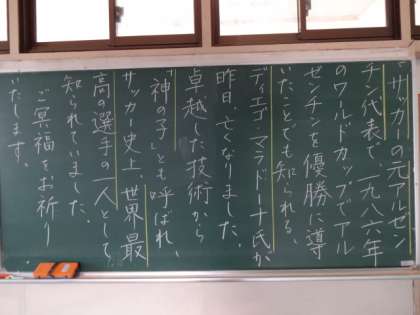 サッカーの元アルゼン
チン代表で、一九八六年
のワールドカップでアル
ゼンチンを優勝に導
いたことでも知られる、
ディエゴ・マラドーナ氏が
昨日、亡くなりました。
卓越した技術から
「神の子」とも呼ばれ、
サッカー史上、世界最
高の選手の一人として
知られていました。
ご冥福をお祈り
いたします。